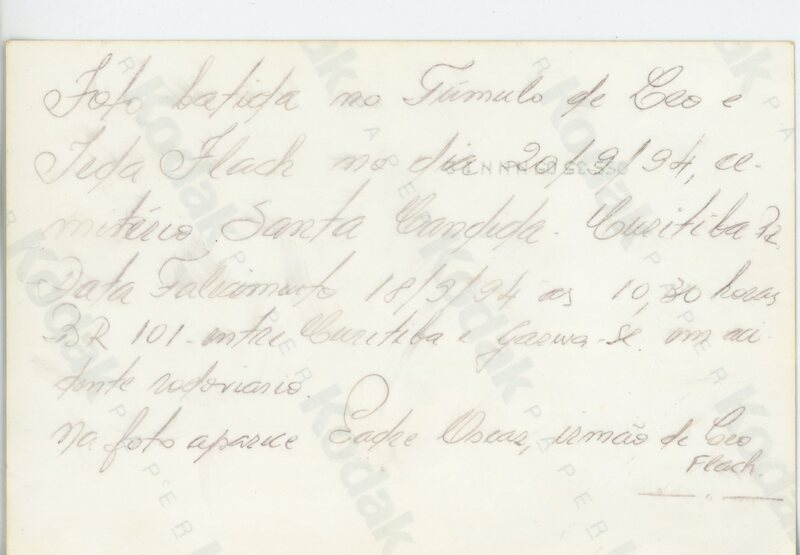 Foto batida no Túmulo de Leo e
Ieda Flach no dia 20/9/94, ce-
mitério Santa Candida. Curitiba Pr.
Data Falecimento 18/9/94 as 10,30 horas
BR 101 - entre Curitiba e Garuva - SC em aci-
dente rodoviario.
Na foto aparece Padre Oscar, irmão de Leo
Flach.
Kodak
PAPER